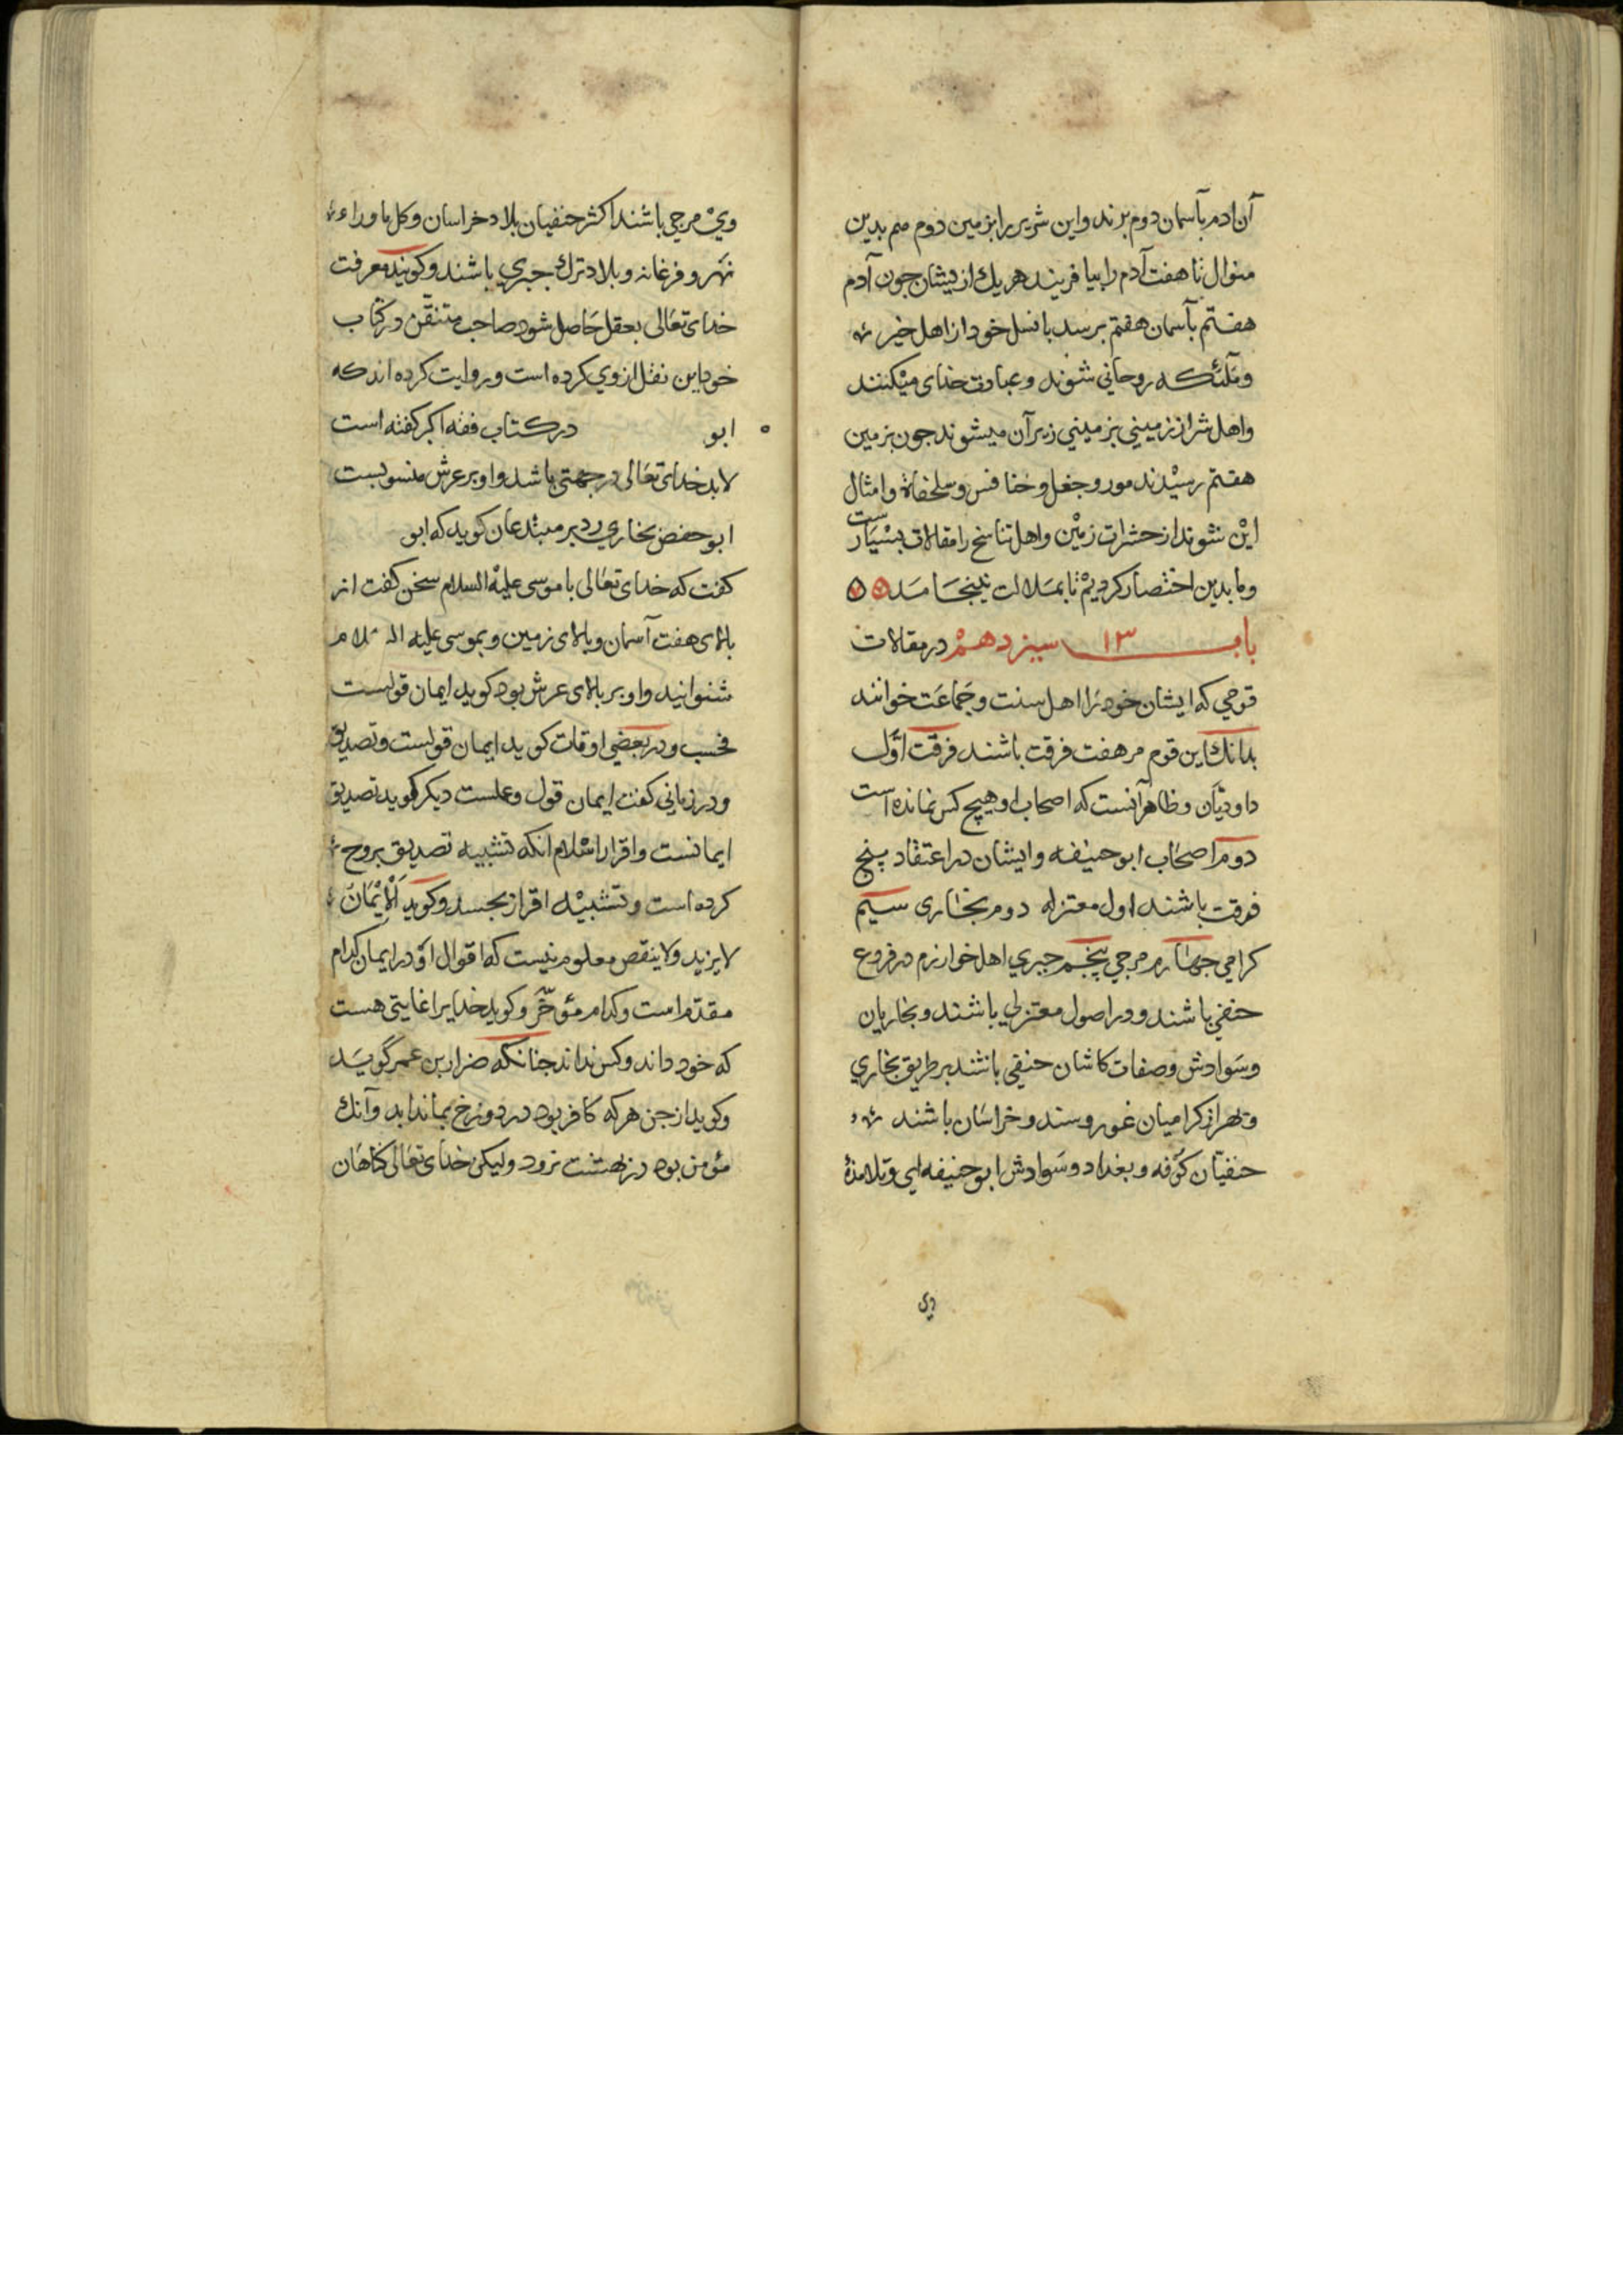 آن ادم بآسمان دوم برند واین شریر را بزمین دوم هم بدین
منوال تا هفت آدم را بیافریند هریك از یشان جون آدم
هفتم بآسمان هفتم برسد بانسل خود از اهل خیر
وملئکه روحانی شوند وعبادت خدای میکنند
واهل شر از زمینی بزمینی زیر آن میشوند جون بزمین
هفتم رسیدند مور وجعل وخنافس وسلحفاة وامثال
این شوند از حشرات زمین واهل تناسخ را مقالات بسیارست
وما بدین اختصار کردیم تا بملالت نینجامد
باب ۱۳ سیزدهم در مقالات
قومی که ایشان خود را اهل سنت وجماعت خوانند
بدانك این قوم مر هفت فرقت باشند فرقت اول
داودیان وظاهر آنست که اصحاب او هیچ کس نمانده است
دوم اصحاب ابو حنیفه وایشان در اعتقاد پنج
فرقت باشند اول معتزله دوم بخاری سیم
کرامی جهارم مرجی پنجم جبری اهل خوارزم در فروع
حنفی باشند ودر اصول معتزلی باشند وبخاریان
وسوادش وصفات کاشان حنفی باشند بر طریق بخاری
کرامیان غور وسند وخراسان باشند
حنفیان کوفه وبغداد وسوادش ابو حنیفه ای وتلامذهٔ
وی
وی مرجی باشند اکثر حنفیان بلاد خراسان وکل ماوراء
نهر وفرغانه وبلاد ترك جبری باشند وکویند معرفت
خدای تعالی بعقل حاصل شود صاحب متنقن در کتاب
خود این نقل از وی کرده است وروایت کرده اند که
ابو در کتاب فقه اکبر کفته است
لابد خدای تعالی در جهتی باشد واو بر عرش منسوبست
ابو حفض بخاری رد بر مبتدعان کوید که ابو
کفت که خدای تعالی با موسی علیه السلام سخن کفت از
بالای هفت آسمان وبالای زمین وبموسی علیه السلام
شنوانید واو بر بالای عرش بود کوید ایمان قولست
فحسب ودر بعضی اوقات کوید ایمان قولست وتصدیق
ودر زمانی کفت ایمان قول وعملست دیکر کوید تصدیق
ایمانست واقرار اسلام انکه تشبیه تصدیق بروح
کرده است وتشبیه اقرار بجسد وکوید اَلْاِیْمَانُ
لایزید ولاینقص معلوم نیست که اقوال او در ایمان کدام
مقدم است وکدام مؤخّر وکوید خدایرا غایتی هست
که خود داند وکس نداند جنانکه ضرار بن عمر گوید
وکوید از جن هر که کافر بود در دوزخ بماند ابد وآنك
مؤمن بود در بهشت نرود ولیکن خدای تعالی کناهان